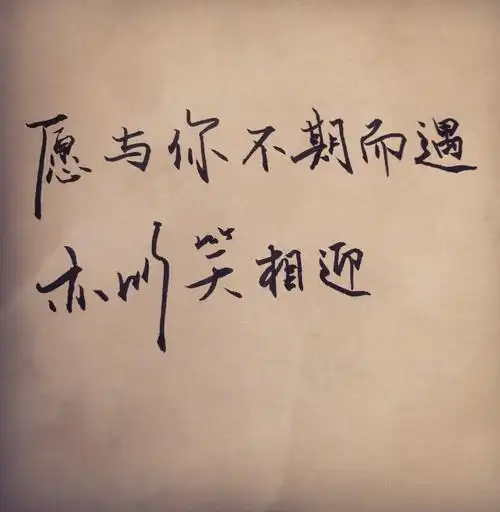 愿与你不期而遇
亦以笑相迎